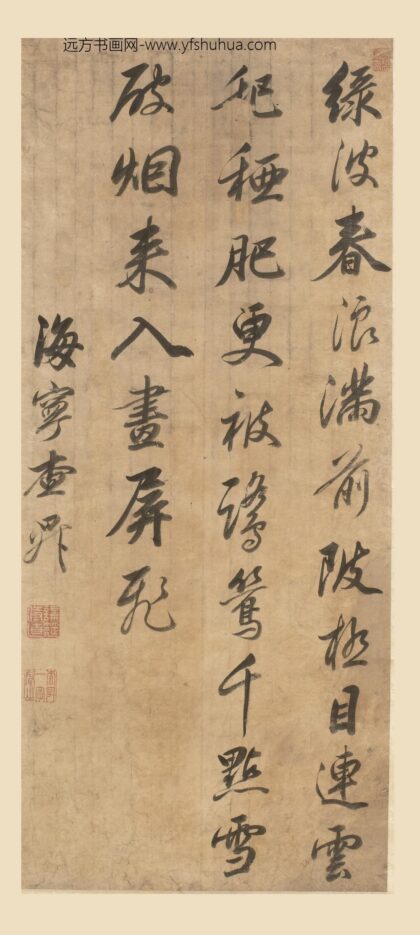 远方书画网-www.yfshuhua.com
綠波春浪滿前陂極目連雲
稏肥更被鷺鷥千點雪
破烟来入畫屏飛
海寧查昇